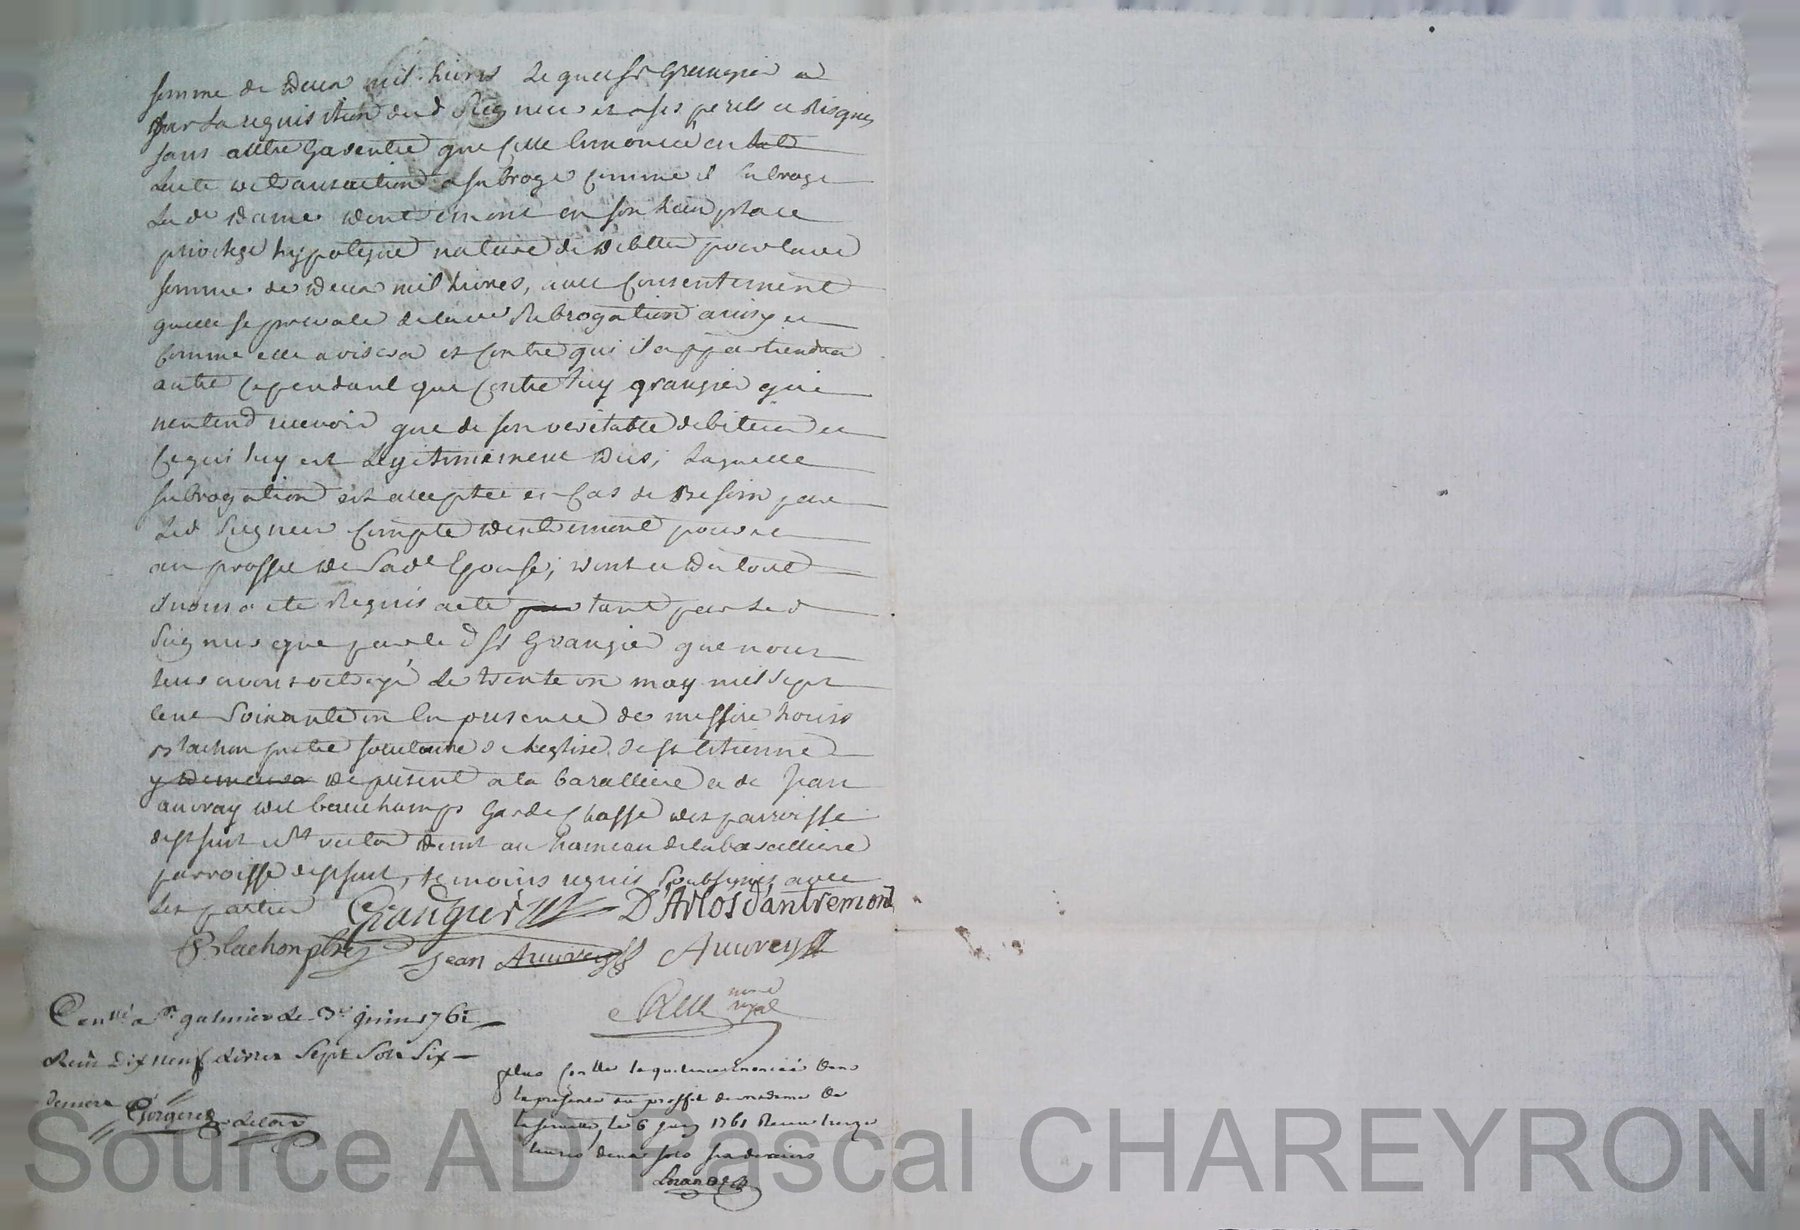 somme de deux mil livres le quel sr Grangier a
sur la requisition dud Seigneur et a ses perils et Risques
sans autre Garentie que celle Enoncée en lad
dite transaction a subrogé comme il subroge
lad dame dentremont en son lieu place
privilege hypoteque nature de debtte pour lad
somme de deux mil livres, avec Consentement
quelle se prevale de lad subrogation ainsy et
comme elle avisera et contre qui il appartiendra
autre cependant que contre luy grangier qui
nentend recevoir que de son veritable debiteur et
ce qui luy est Legitimement Dus, Laquelle
subrogation est acceptée en Cas de Besoin par
led Seigneur Compte dentremont pour et
au proffit de Sad Epouse; dont et du tout
il nous a eté Requis acte tant par led
Seigneur que par le d sr Grangier que nous
leur avons octroyé Le trente un may mil sept
cent Soixante un En presence de messire Louis
Blachon pretre societaire de Leglise de st Etienne
y demeura de present a la baralliere et de Jean
auvray dit beauchamps Garde Chasse des parroisse
dud au hameau de la baralliere
parroisse temoins requis soubsignés avec
Les parties Grangier D'Arlos d'antremont
Blachon ptre Jean Auvrey Auvrey
nore royal
Conllé a st galmier Le 3e juin 1761
Reçu Dix neuf Livres Sept Sols Six
deniers
plus Conllé la quitance Enoncée Dans
la presente au proffit de madame De
le 6 juin 1761 Reçu treze
livres deux sols six deniers